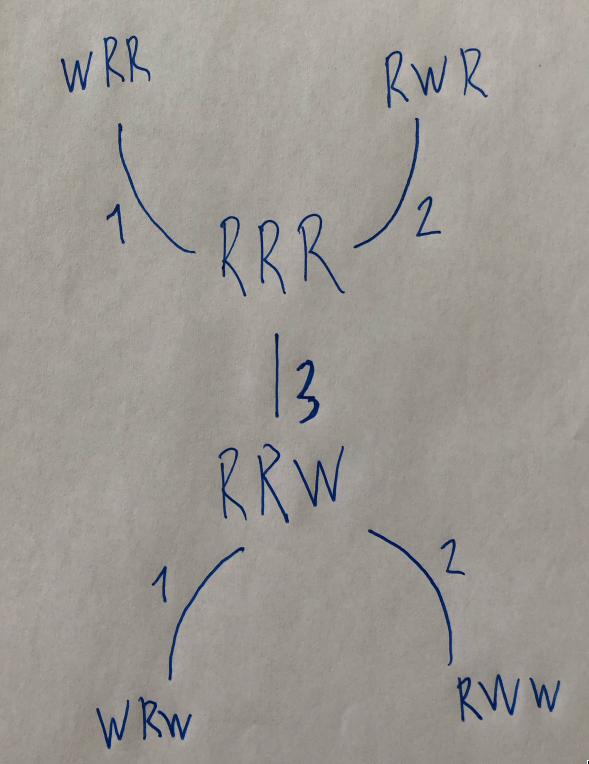 WRR RWR
1 RRR 2
3
RRW
1 2
WRW RWW